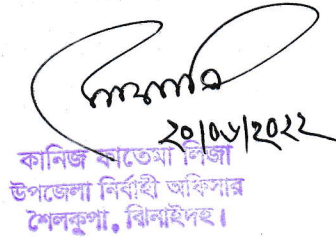 ২০/০৬/২০২২
কানিজ ফাতেমা লিজা
উপজেলা নির্বাহী অফিসার
শৈলকুপা, ঝিনাইদহ।